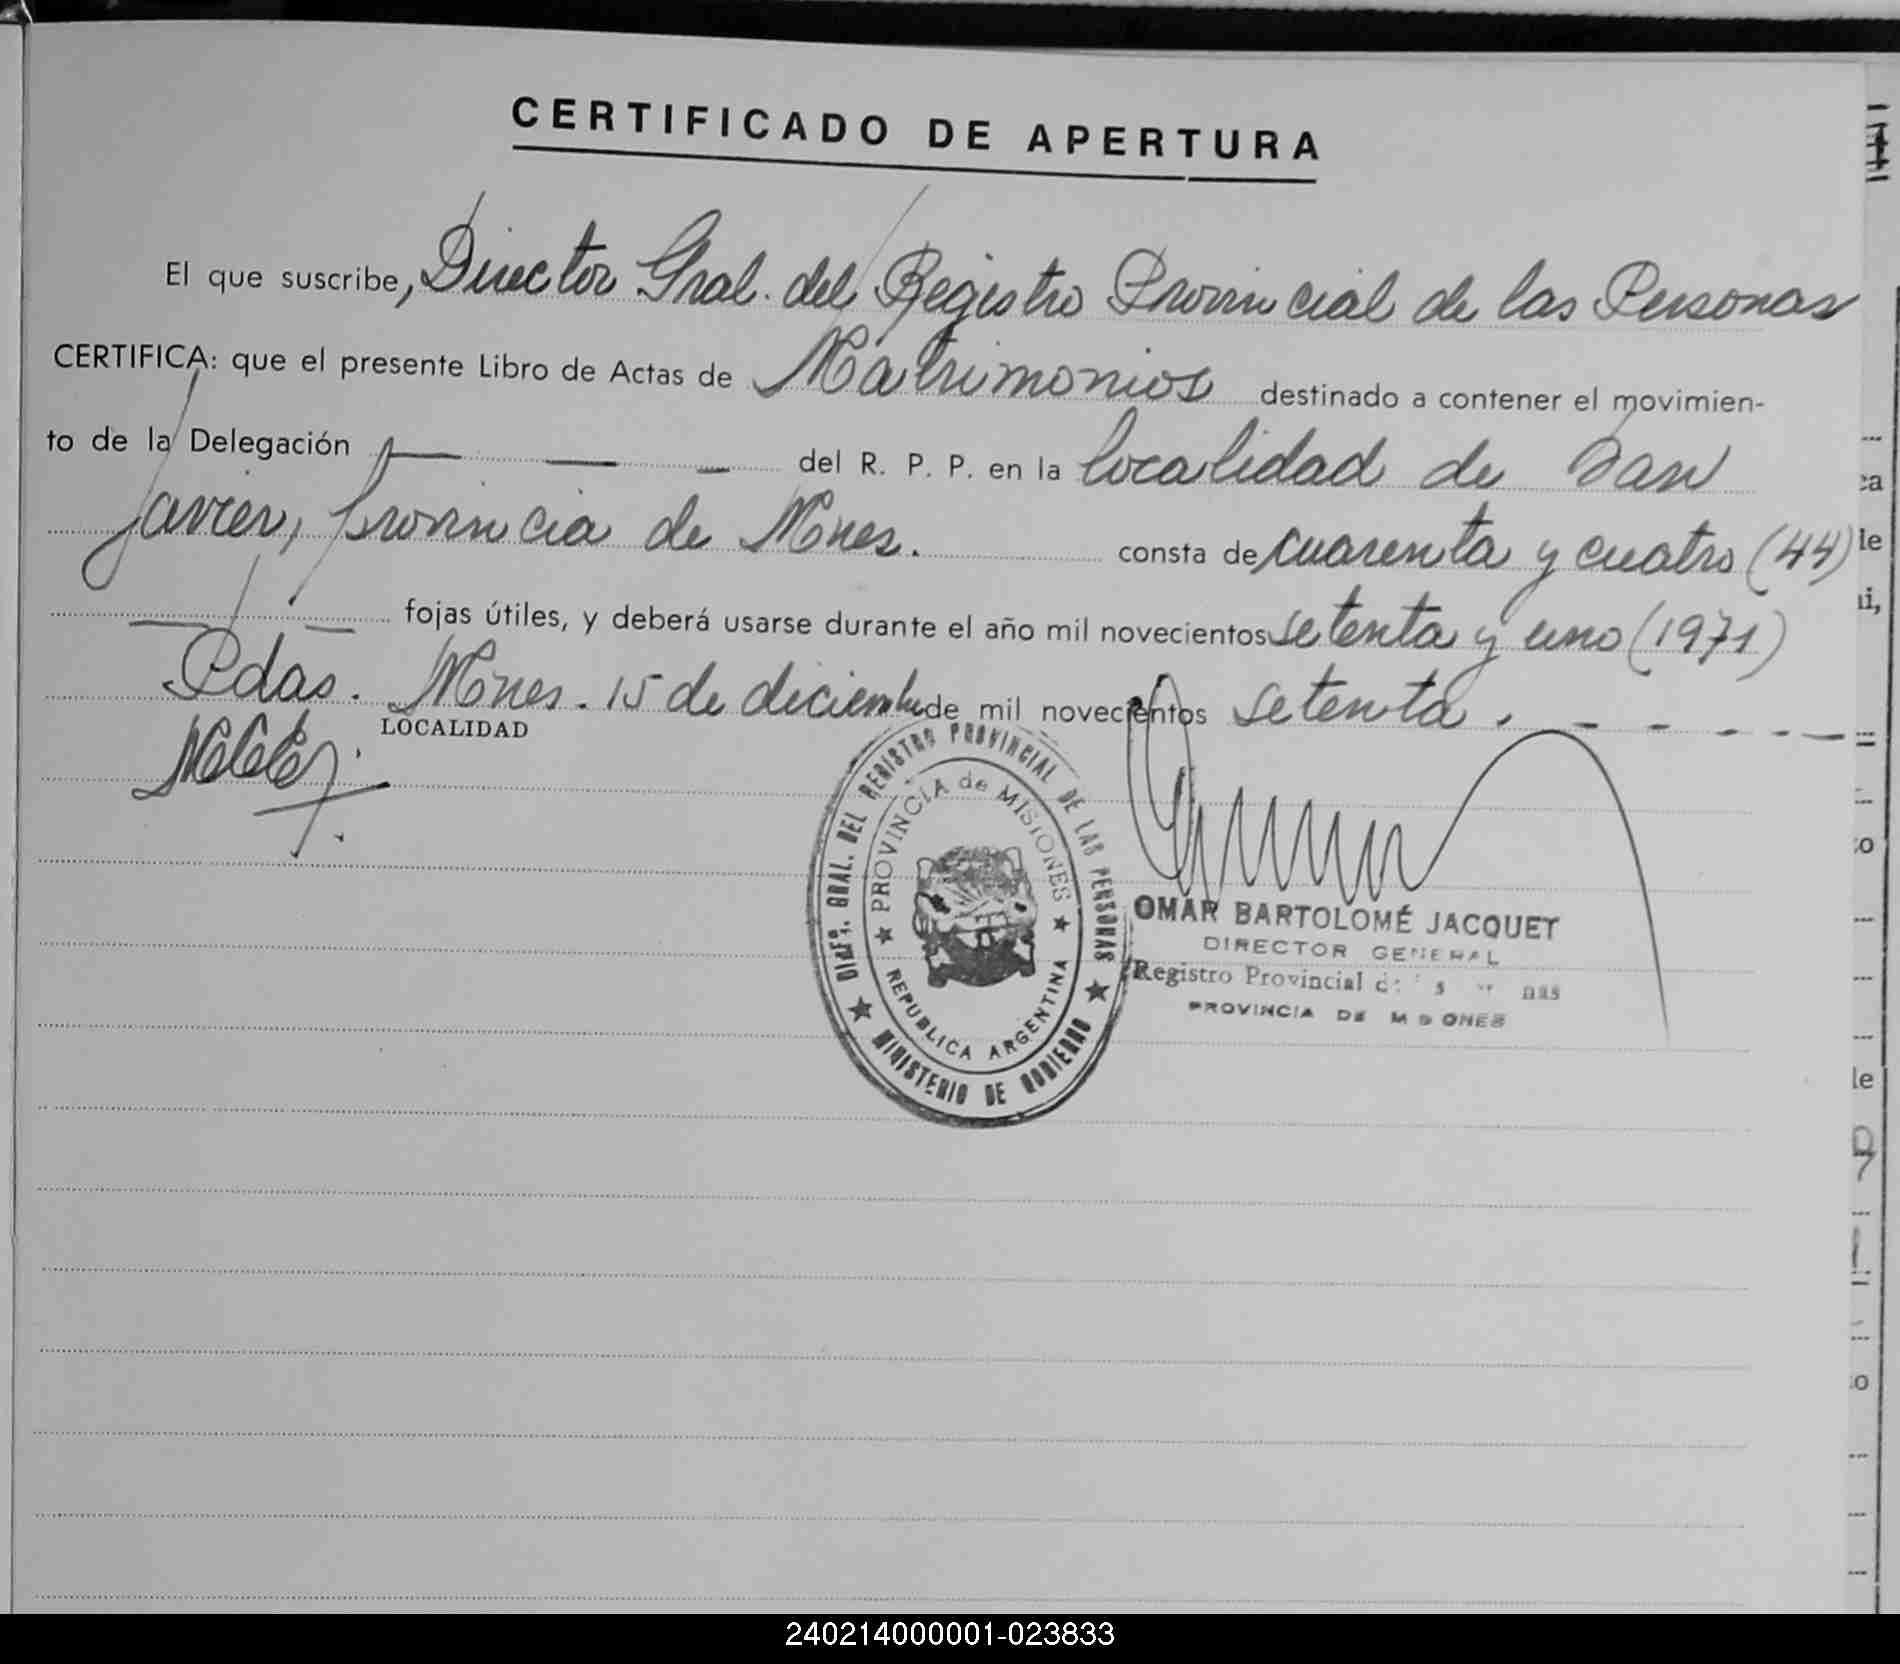 CERTIFICADO DE APERTURA
El que suscribe, Director Gral. del Registro Provincial de las Personas
CERTIFICA: que el presente Libro de Actas de Matrimonios destinado a contener el movimien-
to de la Delegación — — — del R. P. P. en la localidad de San
Javier, provincia de Mnes. consta de cuarenta y cuatro (44)
fojas útiles, y deberá usarse durante el año mil novecientos setenta y uno (1971)
Pdas. Mnes. 15 de diciembre de mil novecientos setenta. - - - - -
LOCALIDAD
DIREC. GRAL. DEL REGISTRO PROVINCIAL DE LAS PERSONAS
PROVINCIA de MISIONES
REPUBLICA ARGENTINA
MINISTERIO DE GOBIERNO
OMAR BARTOLOMÉ JACQUET
DIRECTOR GENERAL
Registro Provincial
PROVINCIA DE MISIONES
240214000001-023833